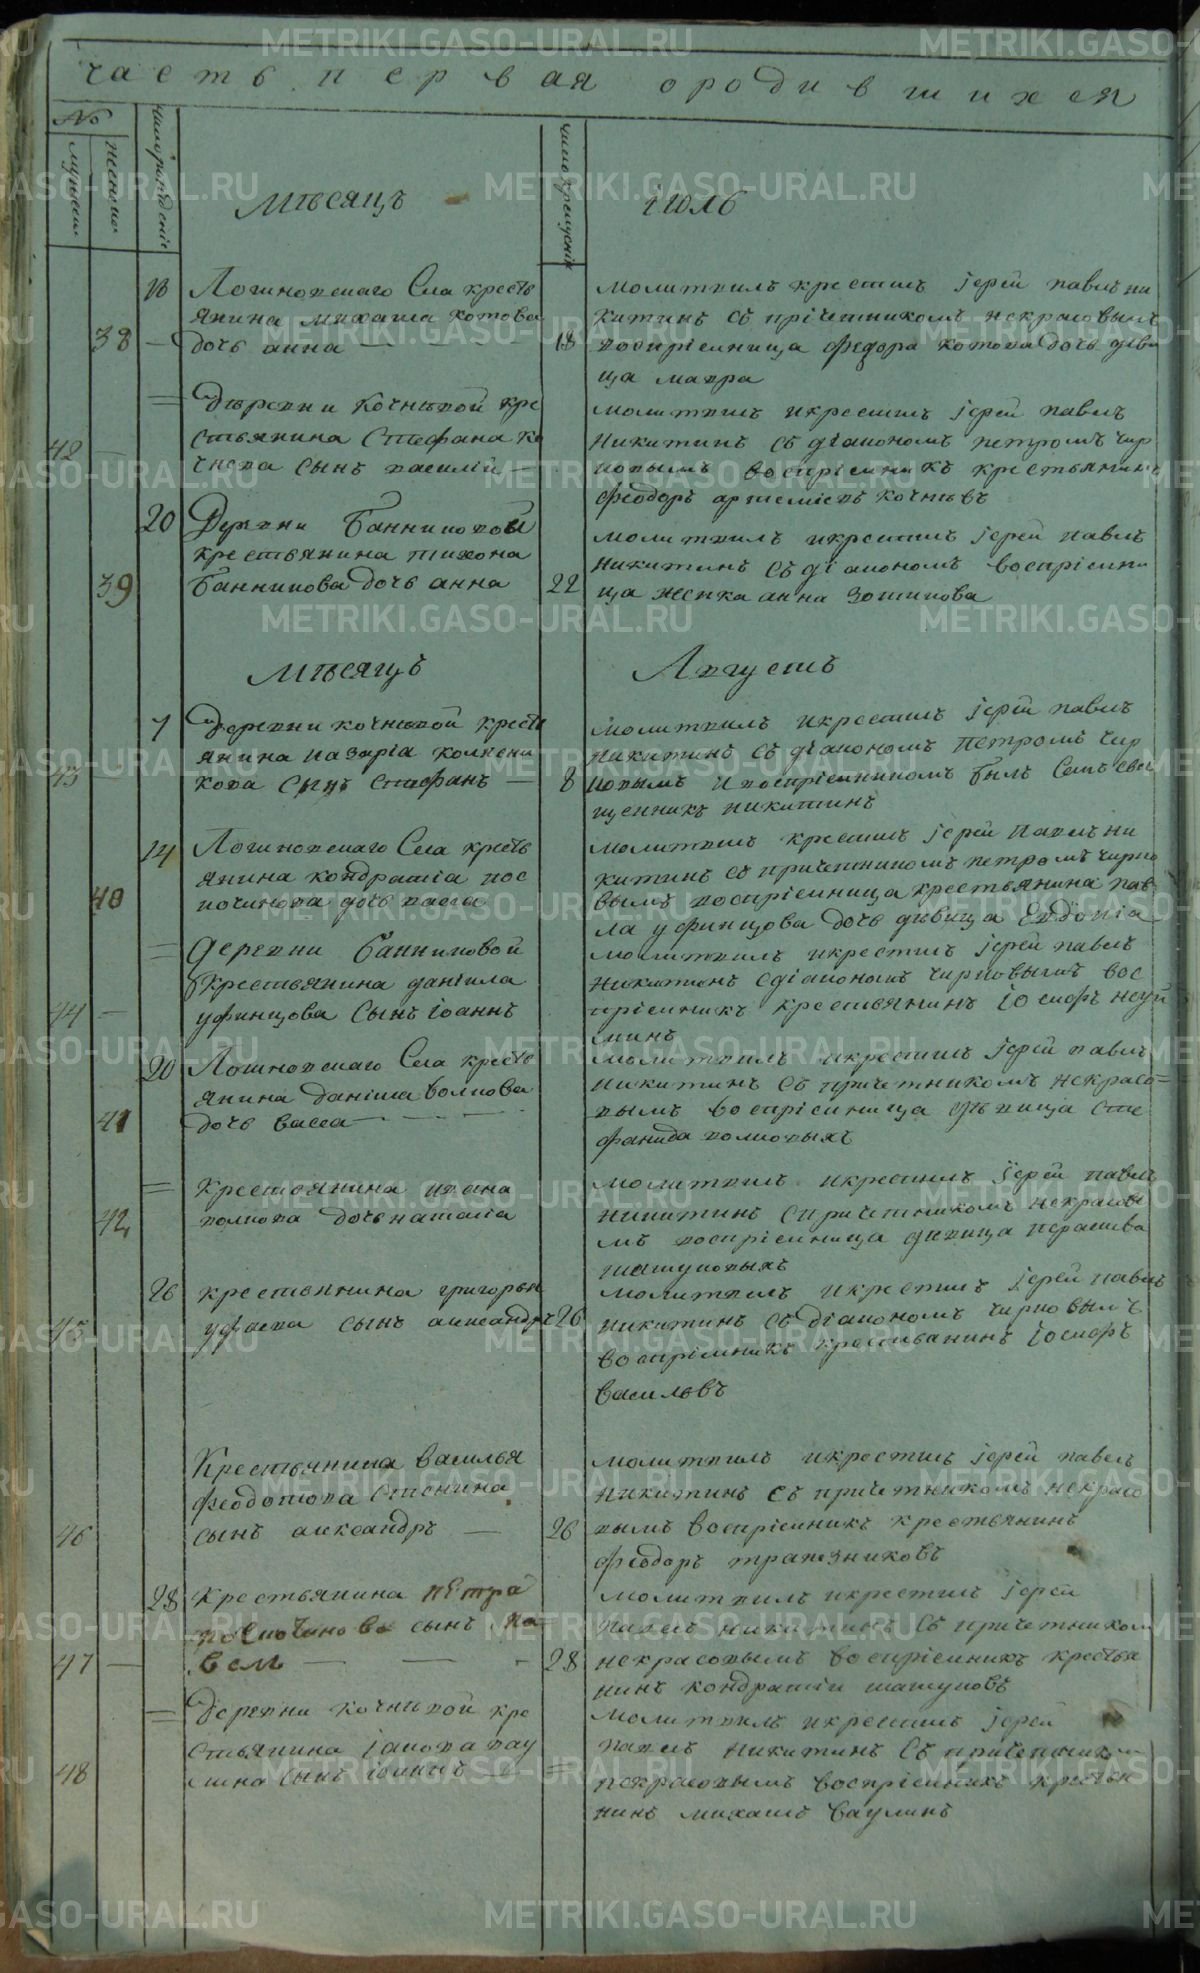 часть первая ородившихся
№
мужеск
женско
число рожденія
Мѣсяцъ
число крещенія
іюль
18
Логиновскаго Села кресть
янина михаила котова
38 — дочь анна — — — 18
молитвилъ крестилъ іерей павлъ ни
китинъ съ прічетникомъ некрасовымъ
воспріемница федора котова дочь дѣви
ца мавра
= Дѣревни Кочнѣвой кре
стьянина Стефана ко
42 — чнева сынъ василій —
молитвилъ икрестилъ іерей павлъ
никитинъ съ діакономъ петромъ чир
ковымъ воспріемникъ крестьянинъ
феодоръ артемиевъ кочнѣвъ
20 Деревни Банниковой
крестьянина тихона
39 Банникова дочь анна 22
молитвилъ икрестилъ іерей павлъ
никитинъ съ діакономъ воспріемни
ца женка анна зотикова
Мѣсяцъ Августъ
7 Деревни кочнѣвой кресть
янина назаріа колпени
43 — кова Сынъ Стефанъ — 8
молитвилъ икрестилъ іерей павлъ
никитинъ съ діакономъ петромъ чир
ковымъ и воспріемникомъ былъ Самъ свя
щенникъ никитинъ
14 Логиновскаго Села кресть
янина кондратіа пос
40 почикова дочь васса
молитвилъ крестилъ іерей Павелъ ни
китинъ съ причетникомъ петромъ чирко
вымъ воспріемница крестьянина пав
ла уфинцова дочь дѣвица Евдокіа
= деревни Банниковой
крестьянина даніила
44 — уфинцова Сынъ іоаннъ
молитвилъ икрестилъ іерей павелъ
никитинъ сдіакономъ чирковымъ вос
пріемникъ крестьянинъ іосифъ неуй
минъ
20 Логиновскаго Села кресть
янина даніила волкова
41 дочь васса — — —
молитвилъ икрестилъ іерей павлъ
никитинъ съ причетникомъ некрасо=
вымъ воспріемница дѣвица сте
фанида волковыхъ
= крестьянина ивана
42 волкова дочь наталіа
молитвилъ икрестилъ іерей павлъ
никитинъ спричетникомъ некрасовы
мъ воспріемница дѣвица параскева
шатуновыхъ
26 крестьянина григорьи
45 уфаева сынъ александръ 26
молитвилъ икрестилъ іерей павлъ
никитинъ съ діакономъ чирковымъ
воспріемникъ крестьянинъ іосифъ
васильевъ
Крестьянина василья
феодотова Стенина
46 сынъ александръ — 26
молитвилъ икрестилъ іерей павелъ
никитинъ съ причетникомъ некрасо
вымъ воспріемникъ крестьянинъ
феодоръ трапезниковъ
28 Крестьянина петра
сынъ па
47 — велъ — — - 28
молитвилъ икрестилъ іерей
павелъ никитинъ съ причетником
некрасовымъ воспріемникъ крестья
нинъ кондратій шатуновъ
= Деревни кочнѣвой кре
стьянина іакова вау
48 лина Сынъ іоаннъ — =
молитвилъ икрестилъ іерей
павелъ никитинъ съ причетником
некрасовымъ воспріемникъ крестья
нинъ михаилъ ваулинъ